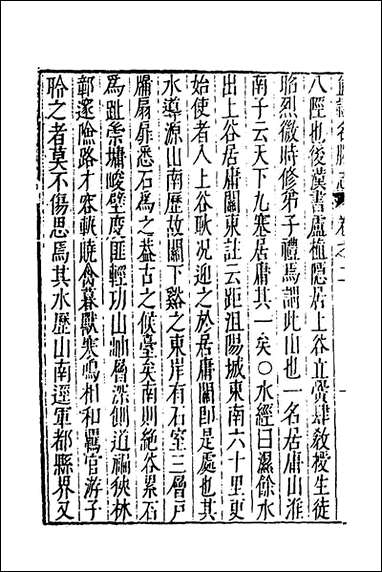 直隸名勝志 卷之二
八陘也後漢書盧植隱居上谷立黌肆教授生徒
昭烈微時修弟子禮焉謂此山也一名居庸山淮
南子云天下九塞居庸其一矣○水經曰濕餘水
出上谷居庸關東註云距沮陽城東南六十里更
始使者入上谷耿况迎之於居庸關即是處也其
水導源山南歷故關下谿之東岸有石室三層戶
牖扇扉悉石為之葢古之候臺矣南則絶谷累石
為趾崇墉峻壁度匪輕功山岫層深側道褊狹林
鄣邃險路才容軌曉禽暮獸寒鳴相和羈官游子
聆之者莫不傷思焉其水歷山南逕軍都縣界又